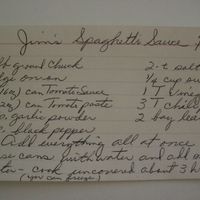 Jim's Spaghetti Sauce
lb ground chuck
lge onion
(16oz) can Tomato Sauce
can Tomato paste
garlic powder
black pepper
2 t salt
1/4 cup
1 T vinegar
3 T chili
2 bay
Add everything all at once
cans with water and add
cook uncovered about 3 h
(you can freeze)